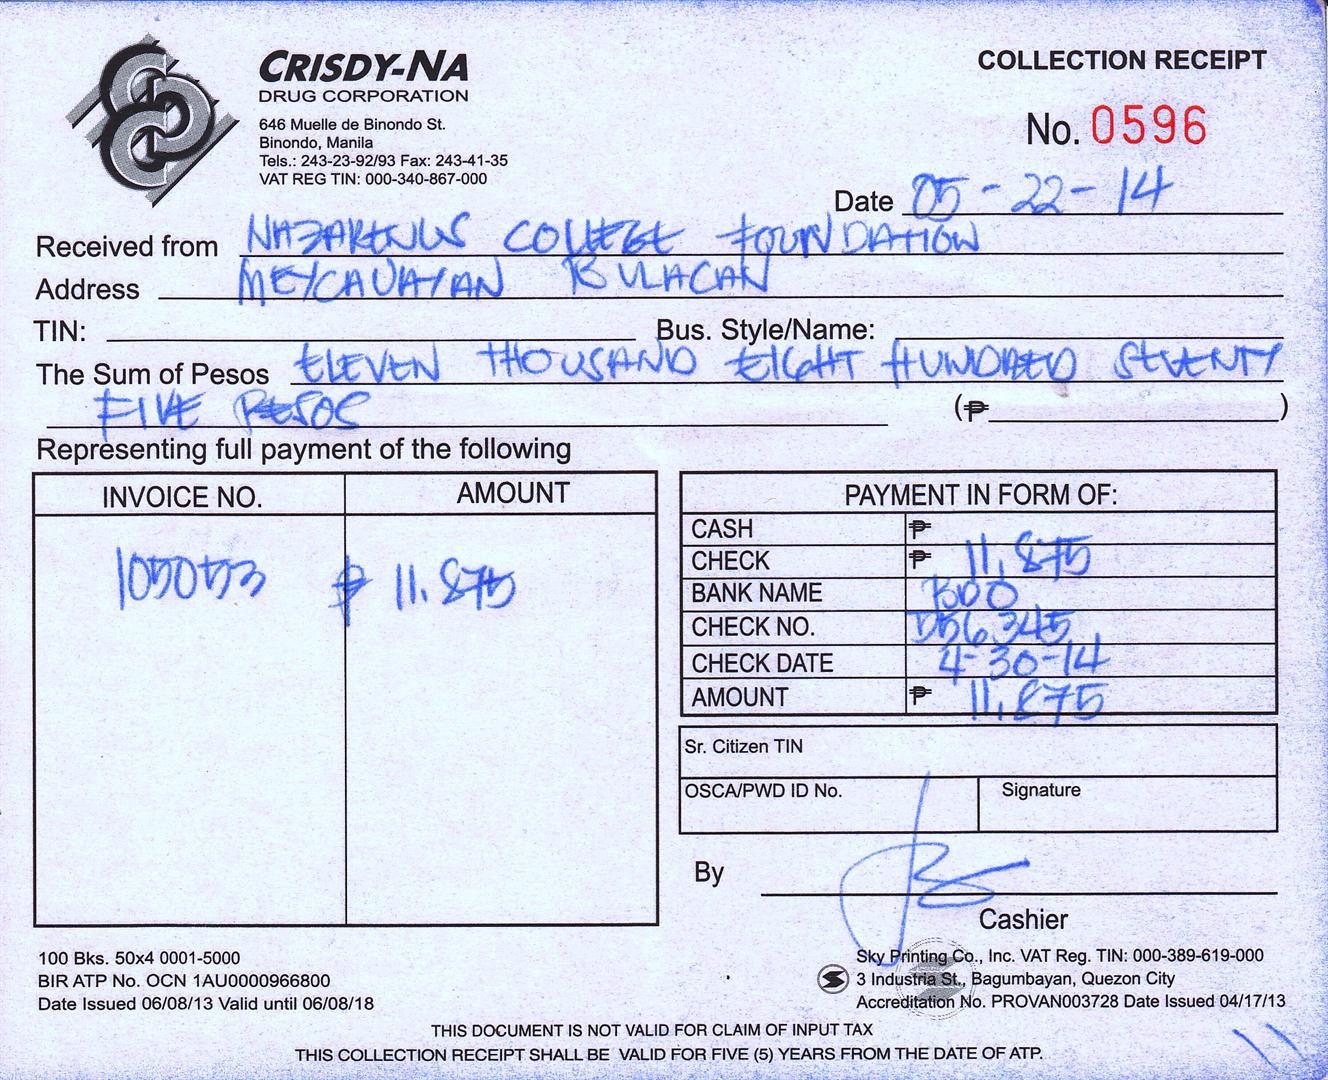 CRISDY-NA
DRUG CORPORATION
646 Muelle de Binondo St.
Binondo, Manila
Tels.: 243-23-92/93 Fax: 243-41-35
VAT REG TIN: 000-340-867-000
COLLECTION RECEIPT
No. 0596
Date 05-22-14
Received from NAZARENUS COLLEGE FOUNDATION
Address MEYCAUAYAN BULACAN
TIN: Bus. Style/Name:
The Sum of Pesos ELEVEN THOUSAND EIGHT HUNDRED SEVENTY
FIVE PESOS (₱ )
Representing full payment of the following
INVOICE NO. AMOUNT
105053 ₱ 11,875
PAYMENT IN FORM OF:
CASH ₱
CHECK ₱ 11,875
BANK NAME BDO
CHECK NO. D56345
CHECK DATE 4-30-14
AMOUNT ₱ 11,875
Sr. Citizen TIN
OSCA/PWD ID No. Signature
By
Cashier
100 Bks. 50x4 0001-5000
BIR ATP No. OCN 1AU0000966800
Date Issued 06/08/13 Valid until 06/08/18
Sky Printing Co., Inc. VAT Reg. TIN: 000-389-619-000
3 Industria St., Bagumbayan, Quezon City
Accreditation No. PROVAN003728 Date Issued 04/17/13
THIS DOCUMENT IS NOT VALID FOR CLAIM OF INPUT TAX
THIS COLLECTION RECEIPT SHALL BE VALID FOR FIVE (5) YEARS FROM THE DATE OF ATP.